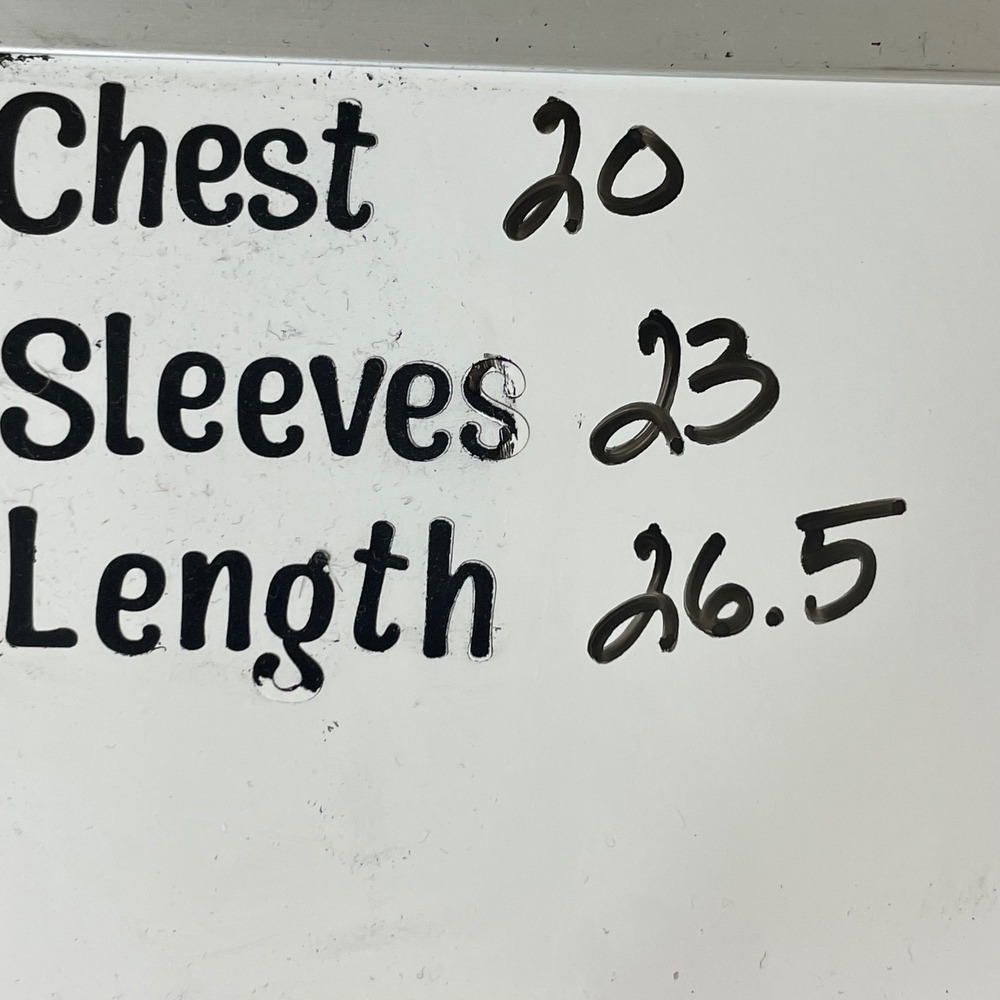 Chest 20
Sleeves 23
Length 26.5